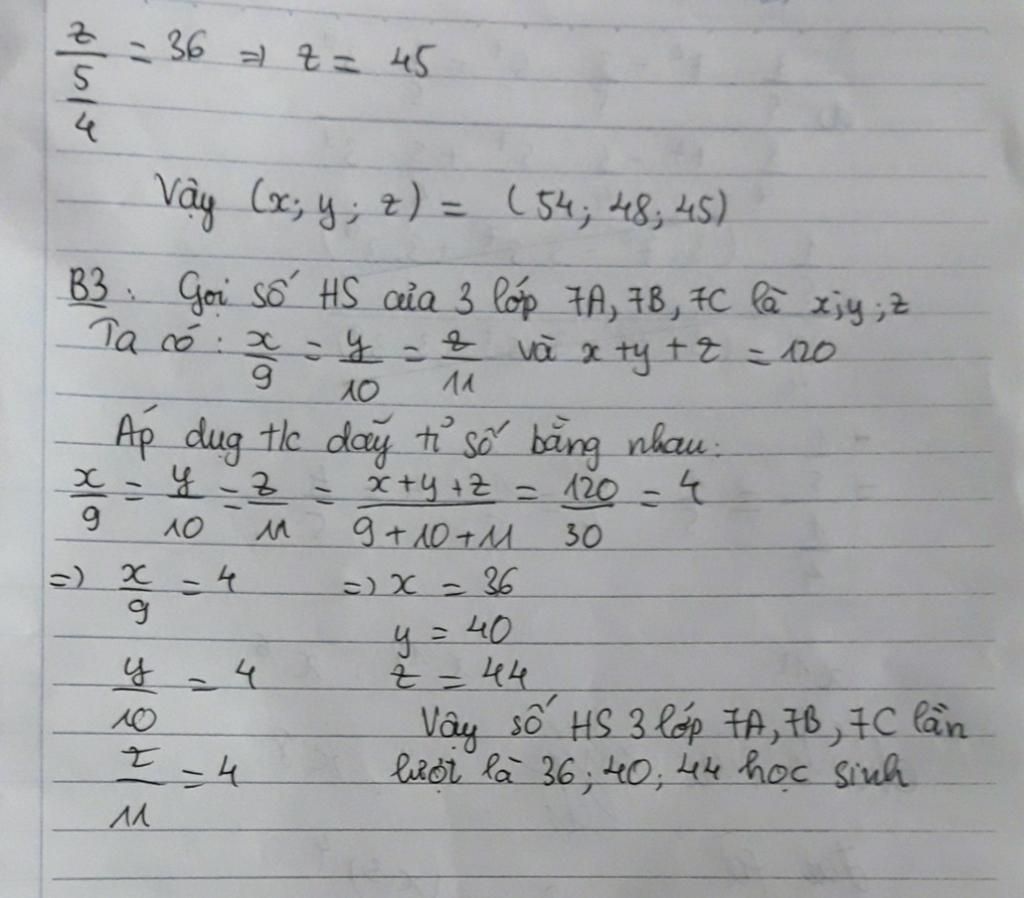 z/(5/4) = 36 => z = 45
Vậy (x; y; z) = (54; 48; 45)
B3: Gọi số HS của 3 lớp 7A, 7B, 7C là x;y;z
Ta có: x/9 = y/10 = z/11 và x+y+z = 120
Áp dụg t/c dãy tỉ số bằng nhau:
x/9 = y/10 = z/11 = (x+y+z)/(9+10+11) = 120/30 = 4
=> x/9 = 4 => x = 36
y = 40
y/10 = 4 z = 44
Vậy số HS 3 lớp 7A, 7B, 7C lần
z/11 = 4 lượt là 36; 40; 44 học sinh